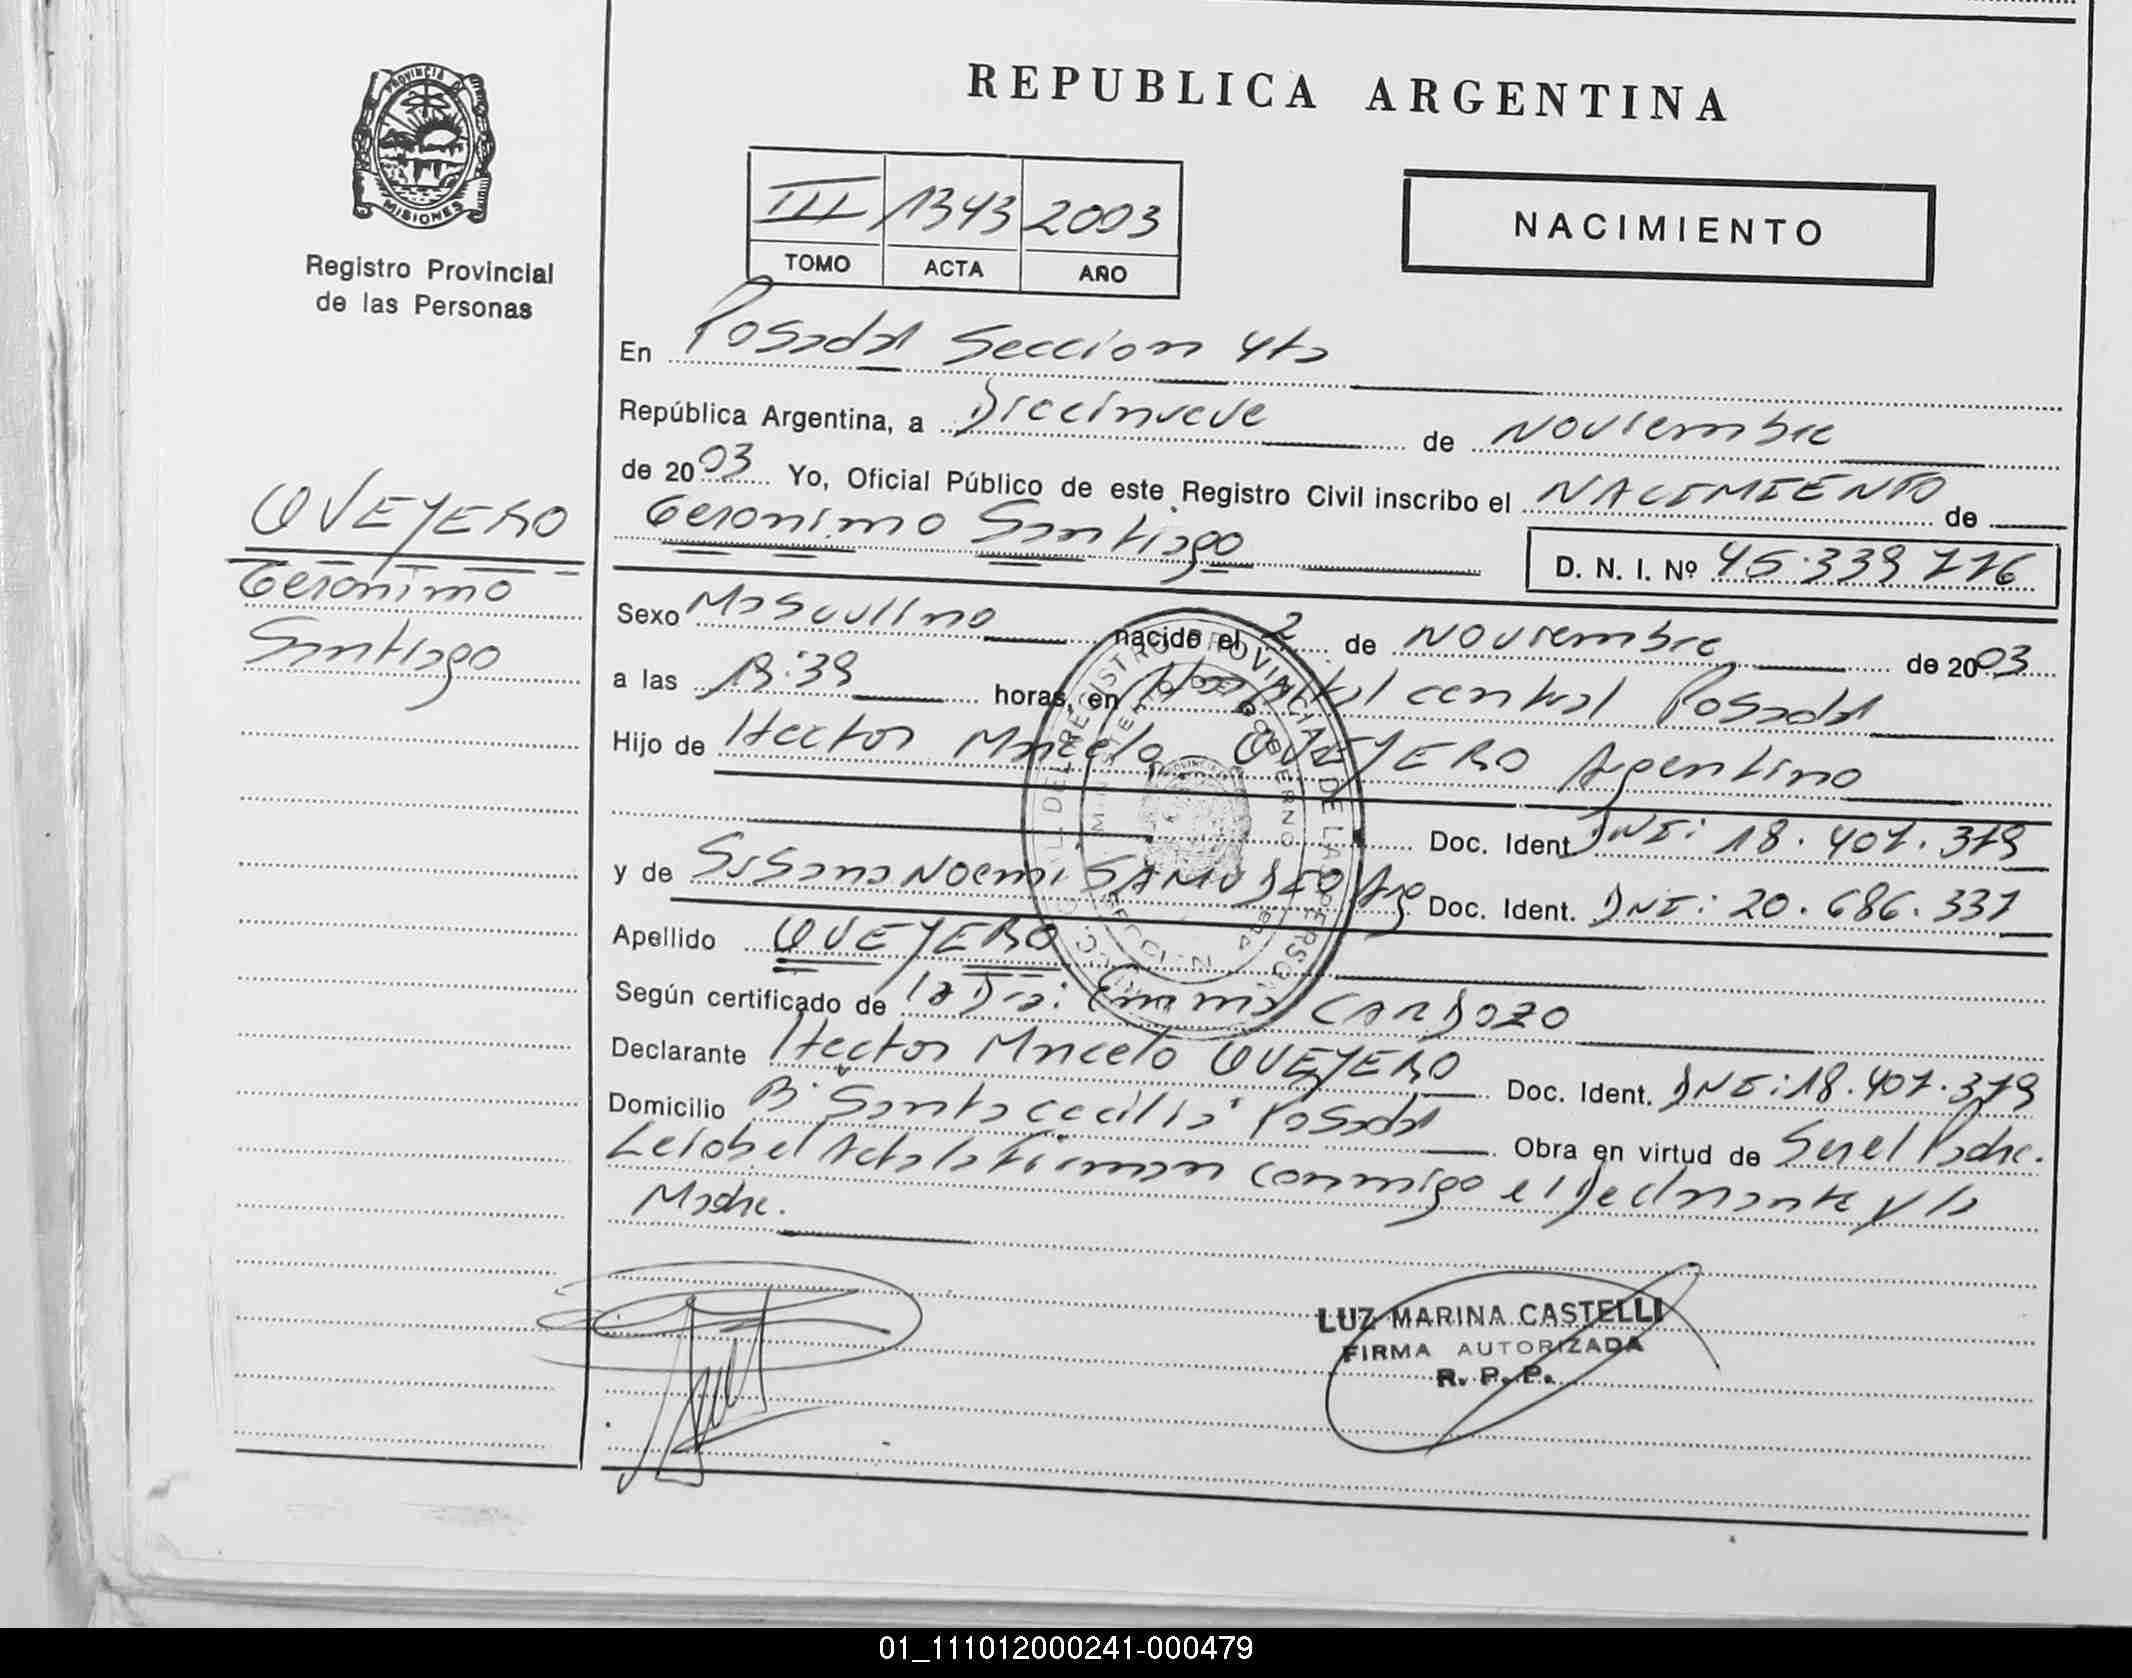 PROVINCIA DE
MISIONES
Registro Provincial
de las Personas
OVEJERO
Geronimo
Santiago
REPUBLICA ARGENTINA
III 1343 2003
TOMO ACTA AÑO
NACIMIENTO
En Posadas Seccion 4ta
República Argentina, a Diecinueve de Noviembre
de 2003 Yo, Oficial Público de este Registro Civil inscribo el NACIMIENTO de
Geronimo Santiago
D. N. I. Nº 45.339.776
Sexo Masculino nacido el 2 de Noviembre de 2003
a las 13:39 horas, en Hospital central Posadas
Hijo de Hector Marcelo OVEJERO Argentino
Doc. Ident. DNI: 18.407.379
y de Susana Noemi SAMUDIO Arg Doc. Ident. DNI: 20.686.337
Apellido OVEJERO
Según certificado de la Dra: Emma CARDOZO
Declarante Hector Marcelo OVEJERO Doc. Ident. DNI: 18.407.379
Domicilio Bº Santa cecilia Posadas Obra en virtud de Ser el Padre.
Leida el Acta la Firman conmigo el Declarante y la
Madre.
LUZ MARINA CASTELLI
FIRMA AUTORIZADA
R. P. P.
01_111012000241-000479